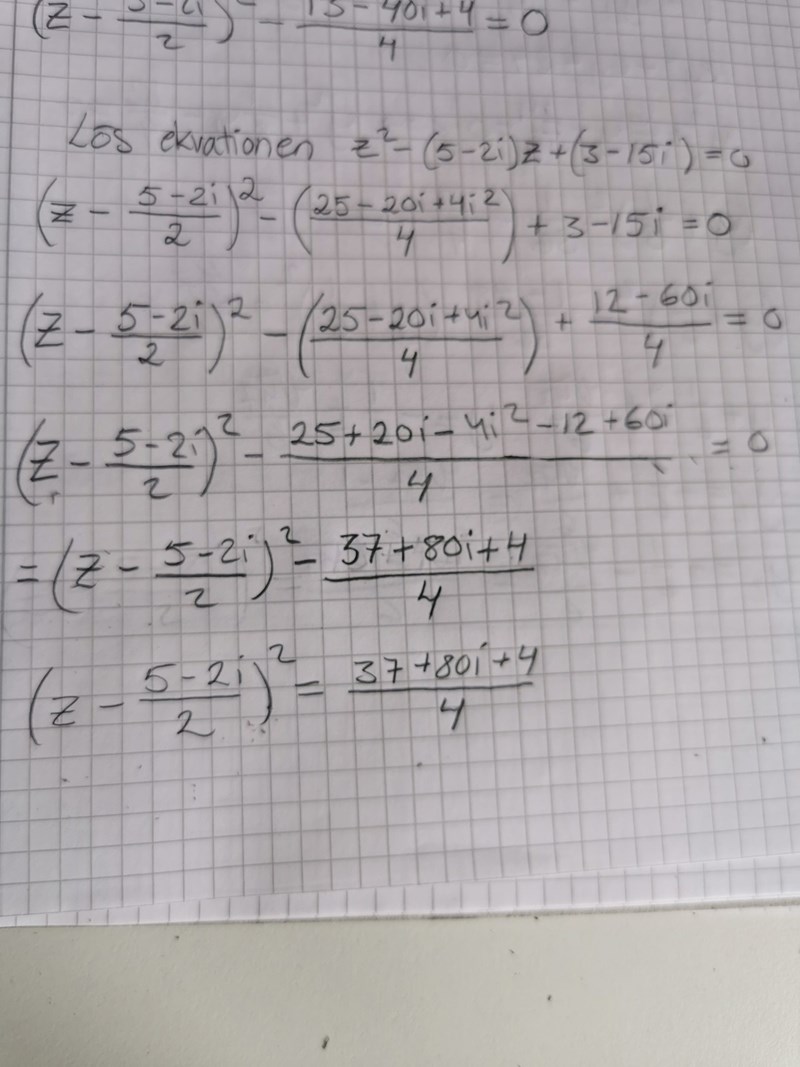 (z - 5-2i/2)² - 13-40i+4/4 = 0
Lös ekvationen z² - (5-2i)z + (3-15i) = 0
(z - 5-2i/2)² - (25-20i+4i²/4) + 3-15i = 0
(z - 5-2i/2)² - (25-20i+4i²/4) + 12-60i/4 = 0
(z - 5-2i/2)² - 25+20i-4i²-12+60i/4 = 0
= (z - 5-2i/2)² - 37+80i+4/4
(z - 5-2i/2)² = 37+80i+4/4